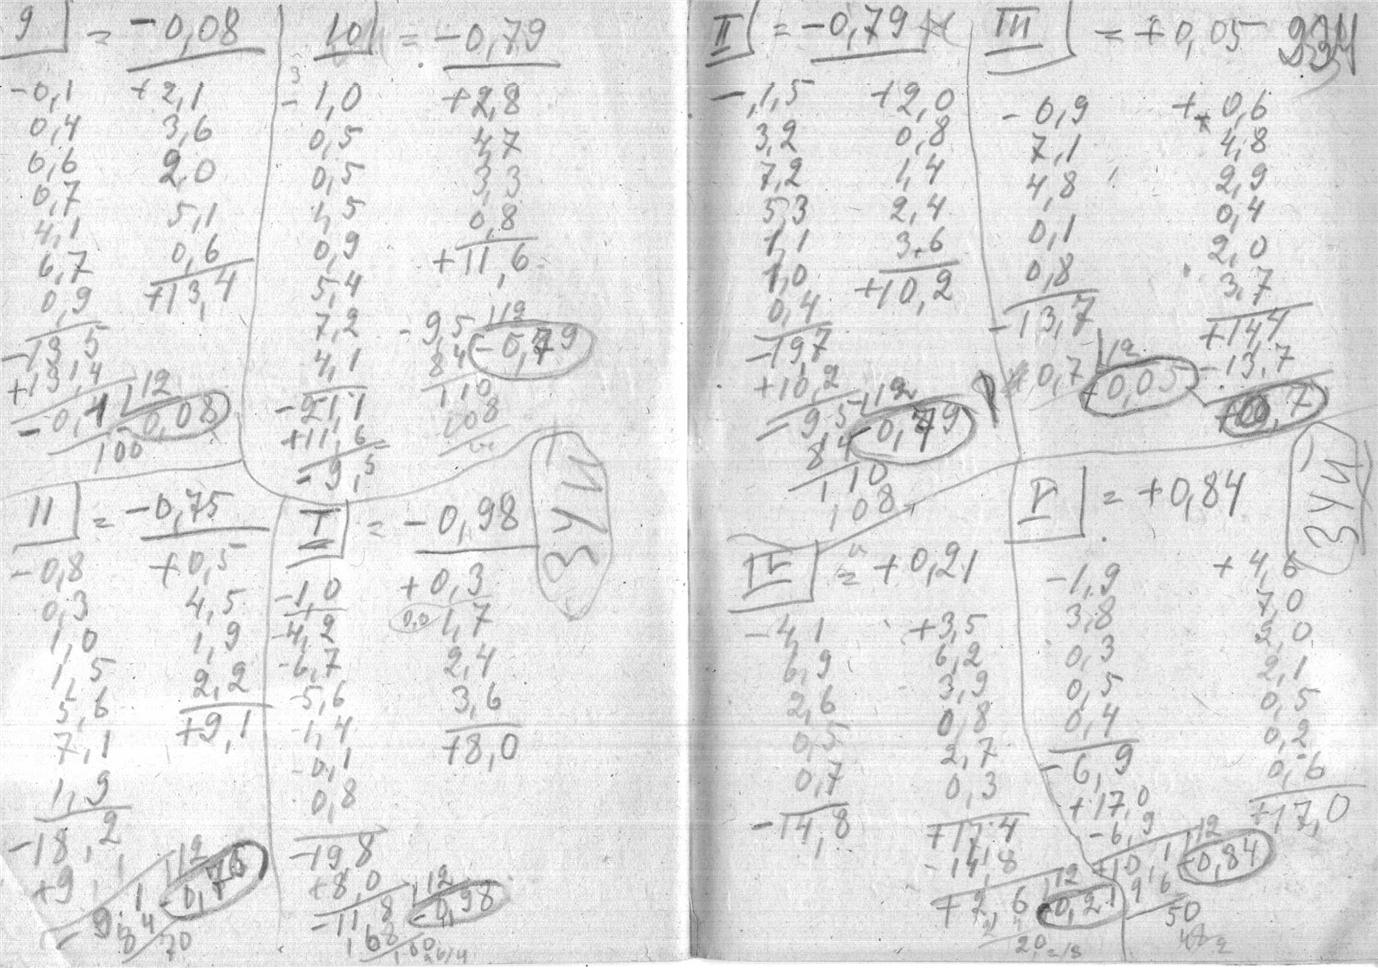 9 = -0,08
-0,1 +2,1
0,4 3,6
0,6 2,0
0,7 5,1
4,1 0,6
6,7 +13,4
0,9
-13,5
+13,4 12
-0,1 -0,08
100
10 = -0,79
-1,0 +2,8
0,5 4,7
0,5 3,3
1,5 0,8
0,9 +11,6
5,4
7,2 -9,5 12
4,1 84 -0,79
-21,1 110
+11,6 108
-9,5
11 = -0,75
-0,8 +0,5
0,3 4,5
1,0 1,9
1,5 2,2
5,6 +9,1
7,1
1,9
-18,2
+9,1 12
-9,1 -0,75
84
70
I = -0,98
-1,0 +0,3
-4,2 0,0 1,7
-6,7 2,4
-5,6 3,6
-1,4 +8,0
-0,1
0,8
-19,8
+8,0 12
-11,8 -0,98
108
100
II = -0,79
-1,5 +2,0
3,2 0,8
7,2 1,4
5,3 2,4
1,1 3,6
1,0 +10,2
0,4
-19,7
+10,2 12
-9,5 -0,79
84
110
108
III = +0,05
-0,9 + 0,6
7,1 4,8
4,8 2,9
0,1 0,4
0,8 2,0
-13,7 3,7
+14,4
-13,7
0,7 12
+0,05 +0,7
IV = +0,21
-4,1 +3,5
6,9 6,2
2,6 3,9
0,5 0,8
0,7 2,7
-14,8 0,3
+17,4
-14,8
+2,6 12
+0,21
20
V = +0,84
-1,9 +4,6
3,8 7,0
0,3 2,0
0,5 2,1
0,4 0,5
-6,9 0,2
+17,0 0,6
-6,9 +17,0
+10,1 12
96 +0,84
50
48